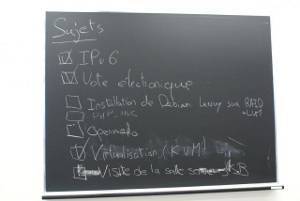 Sujets
IPv6
Vote électronique
Installation de Debian Lenny sur RAID
+LVM
Openmoko
Virtualisation (KVM)
Visite de la salle